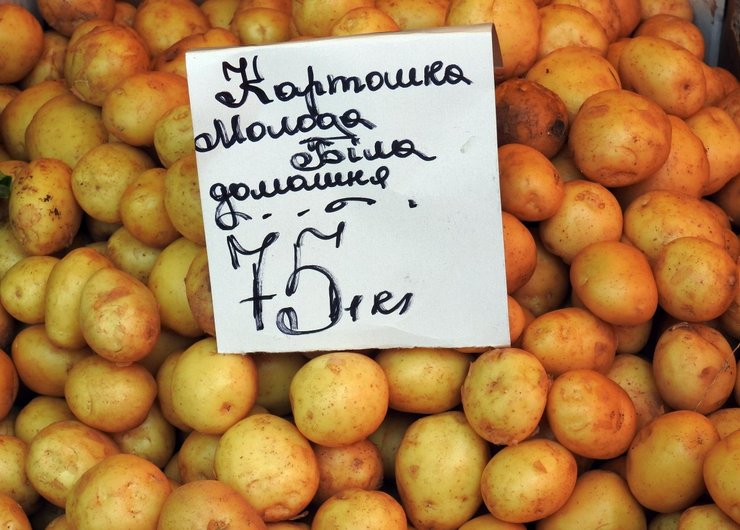 Картошка
Молода
Біла
домашня
75 1кг